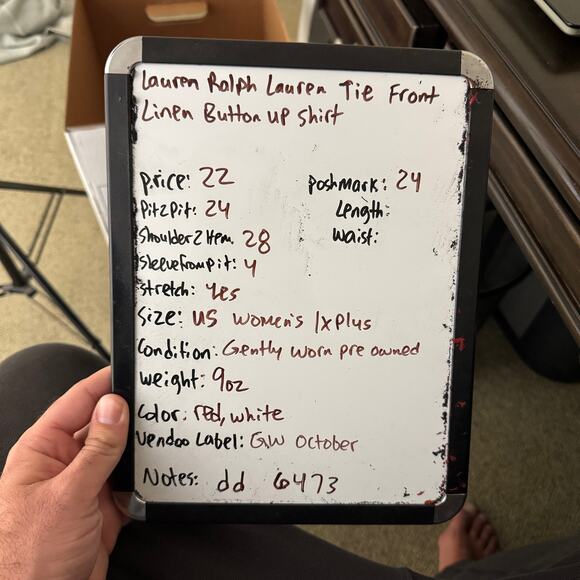 Lauren Ralph Lauren Tie Front
Linen Button up shirt
price: 22
poshmark: 24
Pit2Pit: 24
Length:
Shoulder2Hem: 28
waist:
Sleevefrompit: 4
stretch: yes
Size: US women's 1x plus
Condition: Gently worn pre owned
weight: 9oz
Color: red, white
Vendoo Label: GW October
Notes: dd 6473